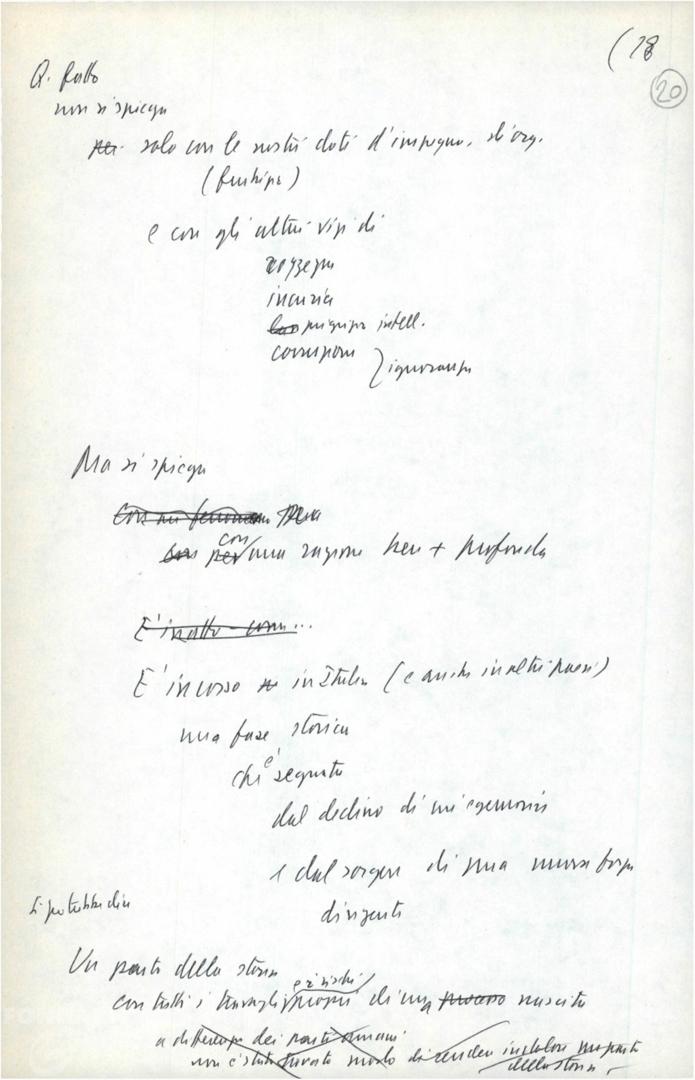 (28
20
Q. fatto
non si spiega
per solo con le nostre doti d'impegno, di org.
e con gli altrui vizi di
incuria
pigrizia intell.
corruzione
ignoranza
Ma si spiega
Con un fenomeno
con
per una ragione ben + profonda
E' in atto - come...
E' in corso in Italia (e anche in altri paesi)
una fase storica
ch'è segnata
dal declino di un'egemonia
e dal sorgere di una nuova forza
dirigente
Si potrebbe dire
Un parto della storia
e i rischi
con tutti i travagli propri di una processo nascita
a differenza dei parti umani
non è stato trovato modo di rendere indolore un parto
della storia